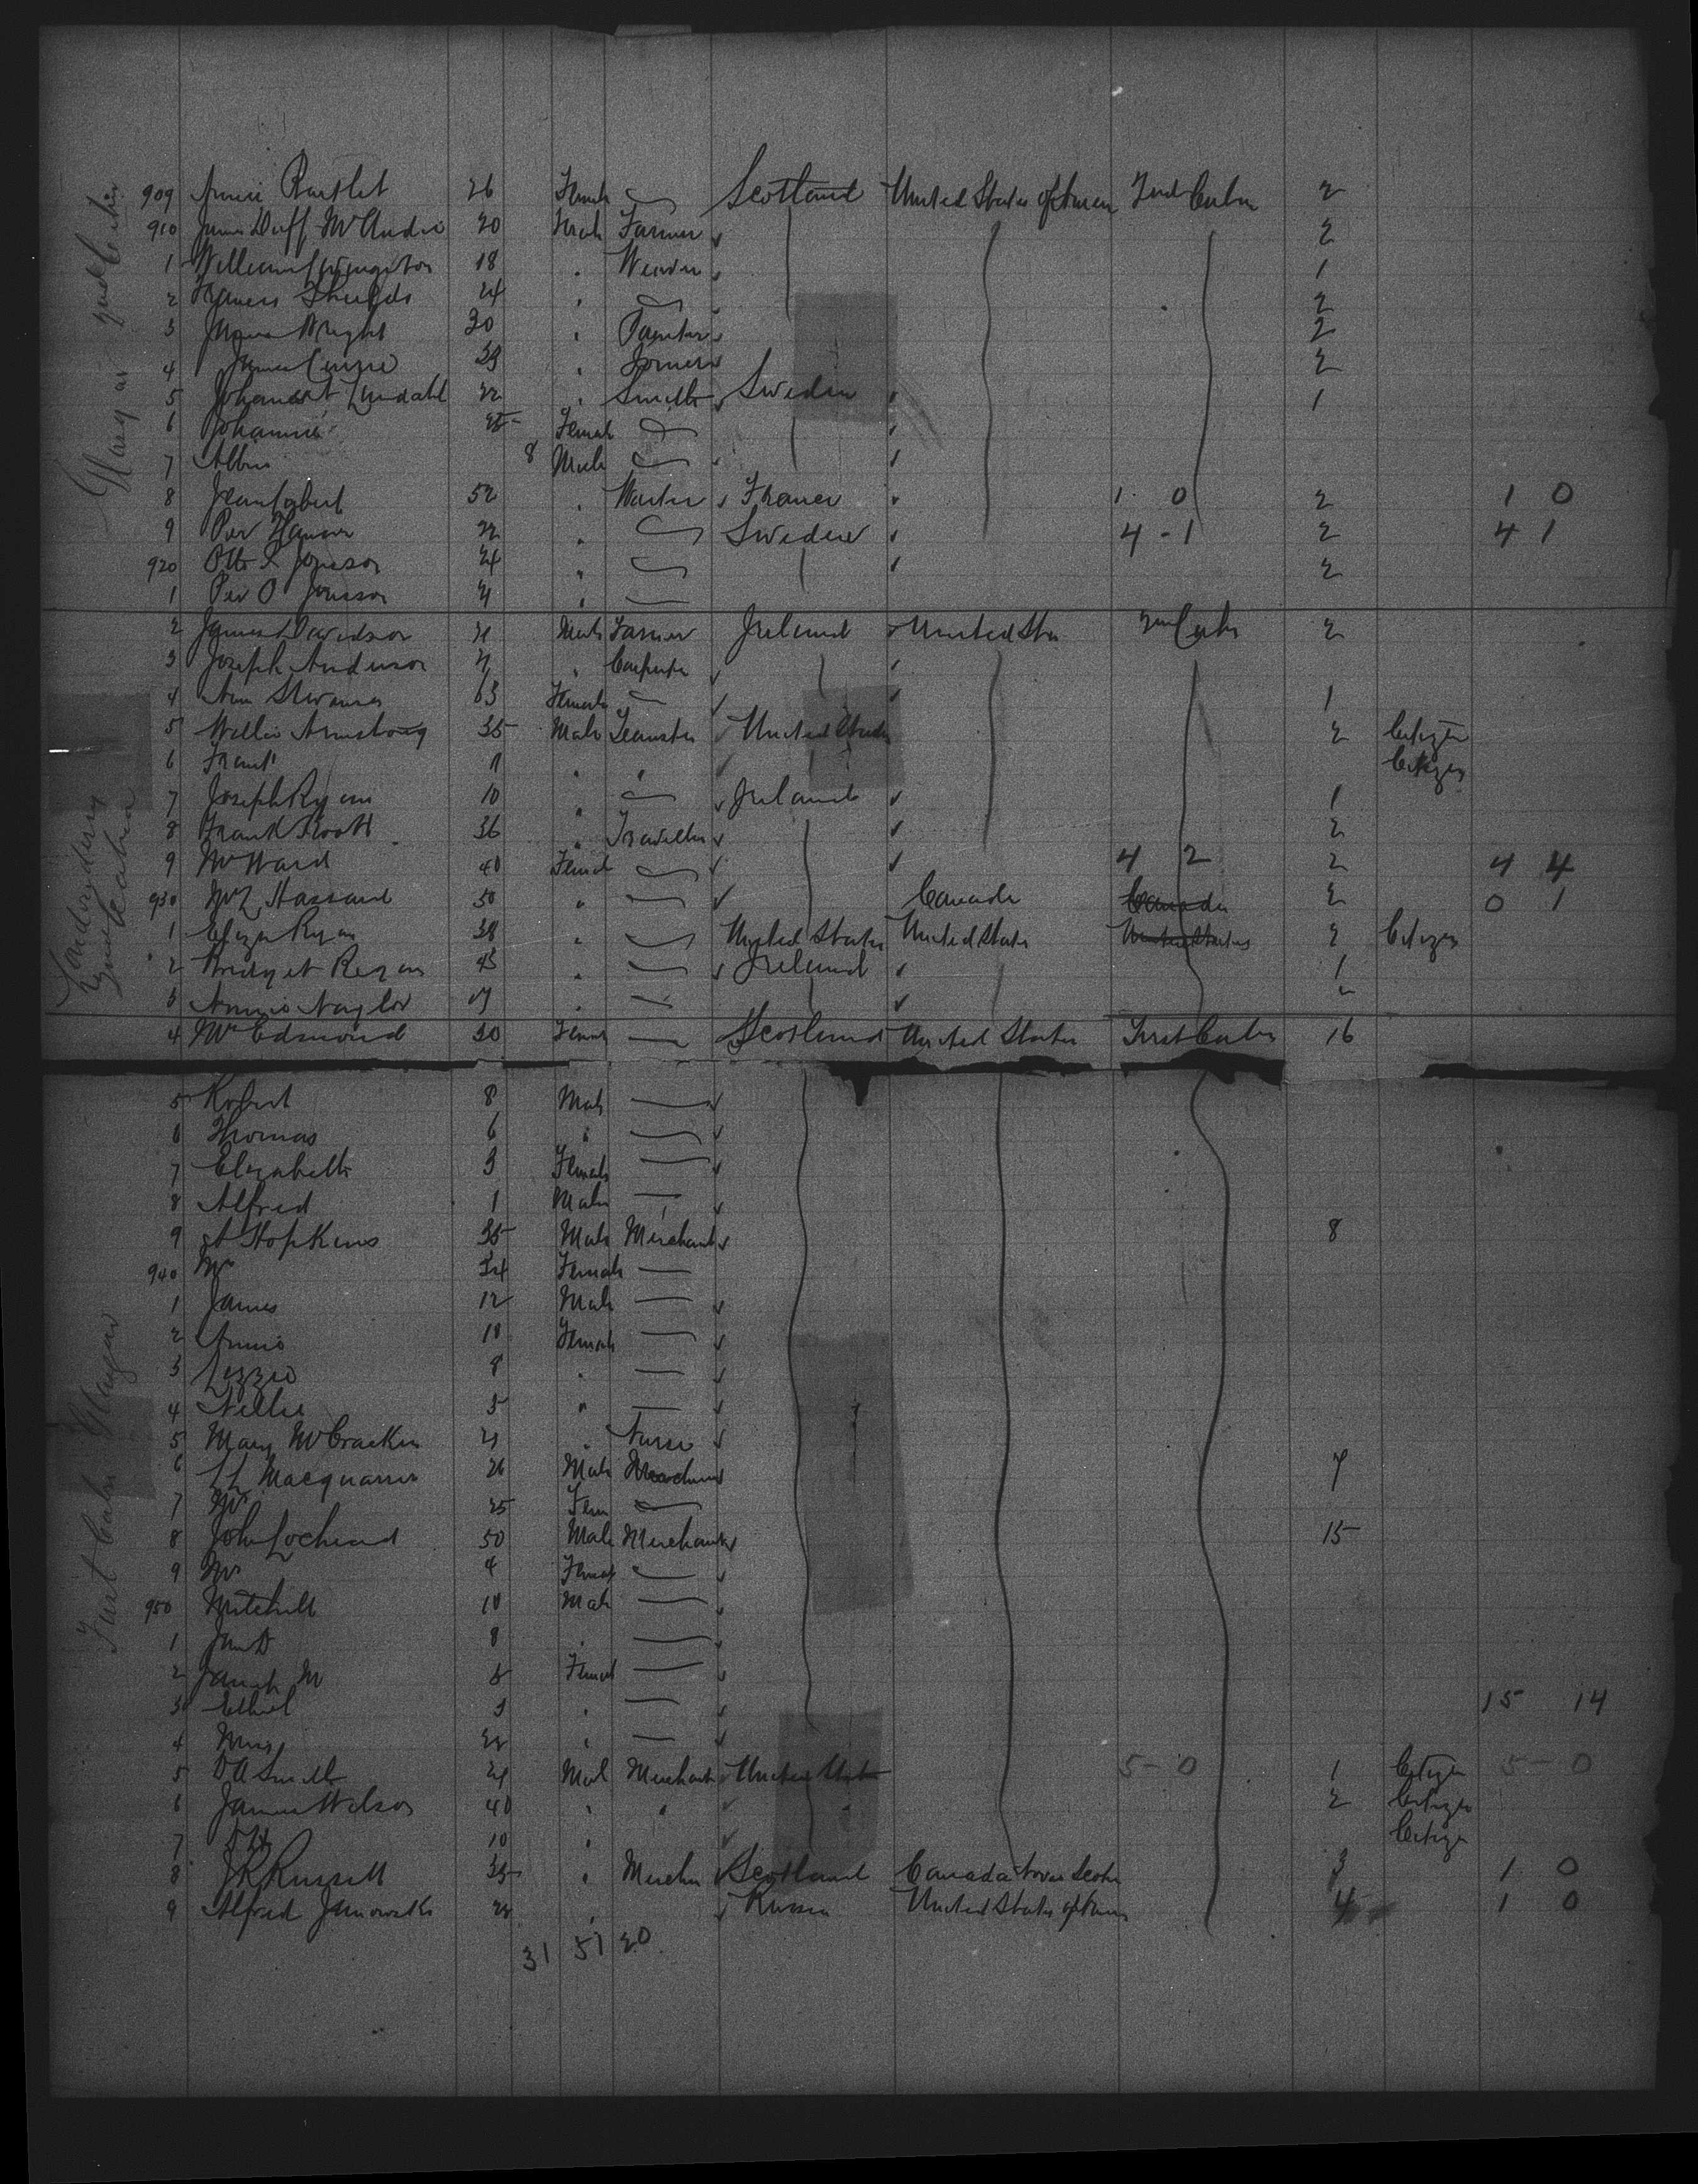 Glasgow 2nd Cabin
909 Annie Bartlet 26 Female Scotland United States of Americ 2nd Cabin 2
910 James Duff McAndie 20 Male Farmer 2
1 William Livingston 18 " Weaver 1
2 Francis Shields 24 " 2
3 James Wright 30 " Painter 2
4 James Currie " Joiner 2
5 Lundahl 22 " Smith Sweden 1
6 Johanna Female
7 Albin 8 Male
8 52 " Waiter France 1 0 2 1 0
9 Per Hanson 22 " Sweden 4 - 1 2 4 1
920 Otto Jonsson 24 " 2
1 Per O Jonsson 21 "
Londonderry 2nd Cabin
2 James Davidson 21 Male Farmer Ireland United Sta 2nd Cabin 2
3 Joseph Anderson 21 " Carpenter
4 Ann 63 Female 1
5 Willie Armstrong 35 Male Teamster United States 2 Citizen
6 Frank " " Citizen
7 Joseph Ryan 10 " Ireland 1
8 Frank Scott 36 " Traveller 2
9 Mrs Ward 40 Female 4 2 2 4 4
930 Hassard 50 " Canada Canada 2 0 1
1 Eliza Ryan 38 " United States United States United States 2 Citizen
2 Bridget Regan 45 " Ireland 1
3 Annie Naylor 19 "
First Cabin Glasgow
4 Mrs Edmond 30 Female Scotland United States First Cabin 16
5 Robert 8 Male
6 Thomas 6 "
7 Elizabeth 3 Female
8 Alfred 1 Male
9 Hopkins 35 Male Merchant 8
940 Mrs 34 Female
1 James 12 Male
2 Annie 10 Female
3 Lizzie 8 "
4 Nellie 5 "
5 Mary McCracken 21 " Nurse
6 Macquarrie 26 Male Merchant 7
7 Mrs 25 Fem
8 John Lochead 50 Male Merchant 15
9 Mrs Female
950 Mitchell 10 Male
1 8 "
2 M Female
3 Ethel 3 " 15 14
4 Miss 22 "
5 D A Smith 21 Mal Merchant United States 5 - 0 1 Citizen 5 - 0
6 James Wilson 40 " " 2 Citizen
7 10 " Citizen
8 J R Russell 35 " Merchan Scotland Canada Nova Scotia 3 1 0
9 Alfred Janowski 22 " Russia United States of Amer 4 1 0
31 51 20